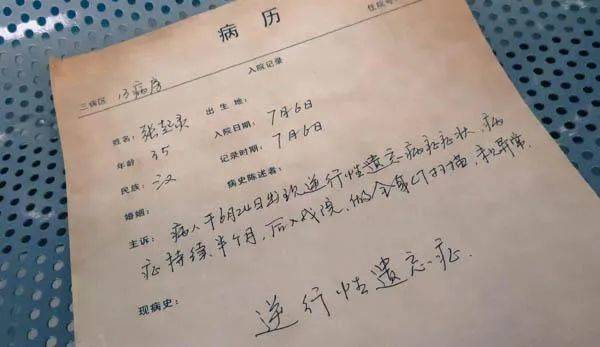 病历
住院号
入院记录
三病区 13病房
姓名: 张起灵 出生地:
年龄 35 入院日期: 7月6日
民族: 汉 记录时期: 7月6日
婚姻: 病史陈述者:
主诉: 病人于6月24日出现逆行性遗忘病症症状,病
症持续半个月,后入我院,做全身CT扫描,未异常.
现病史: 逆行性遗忘症.